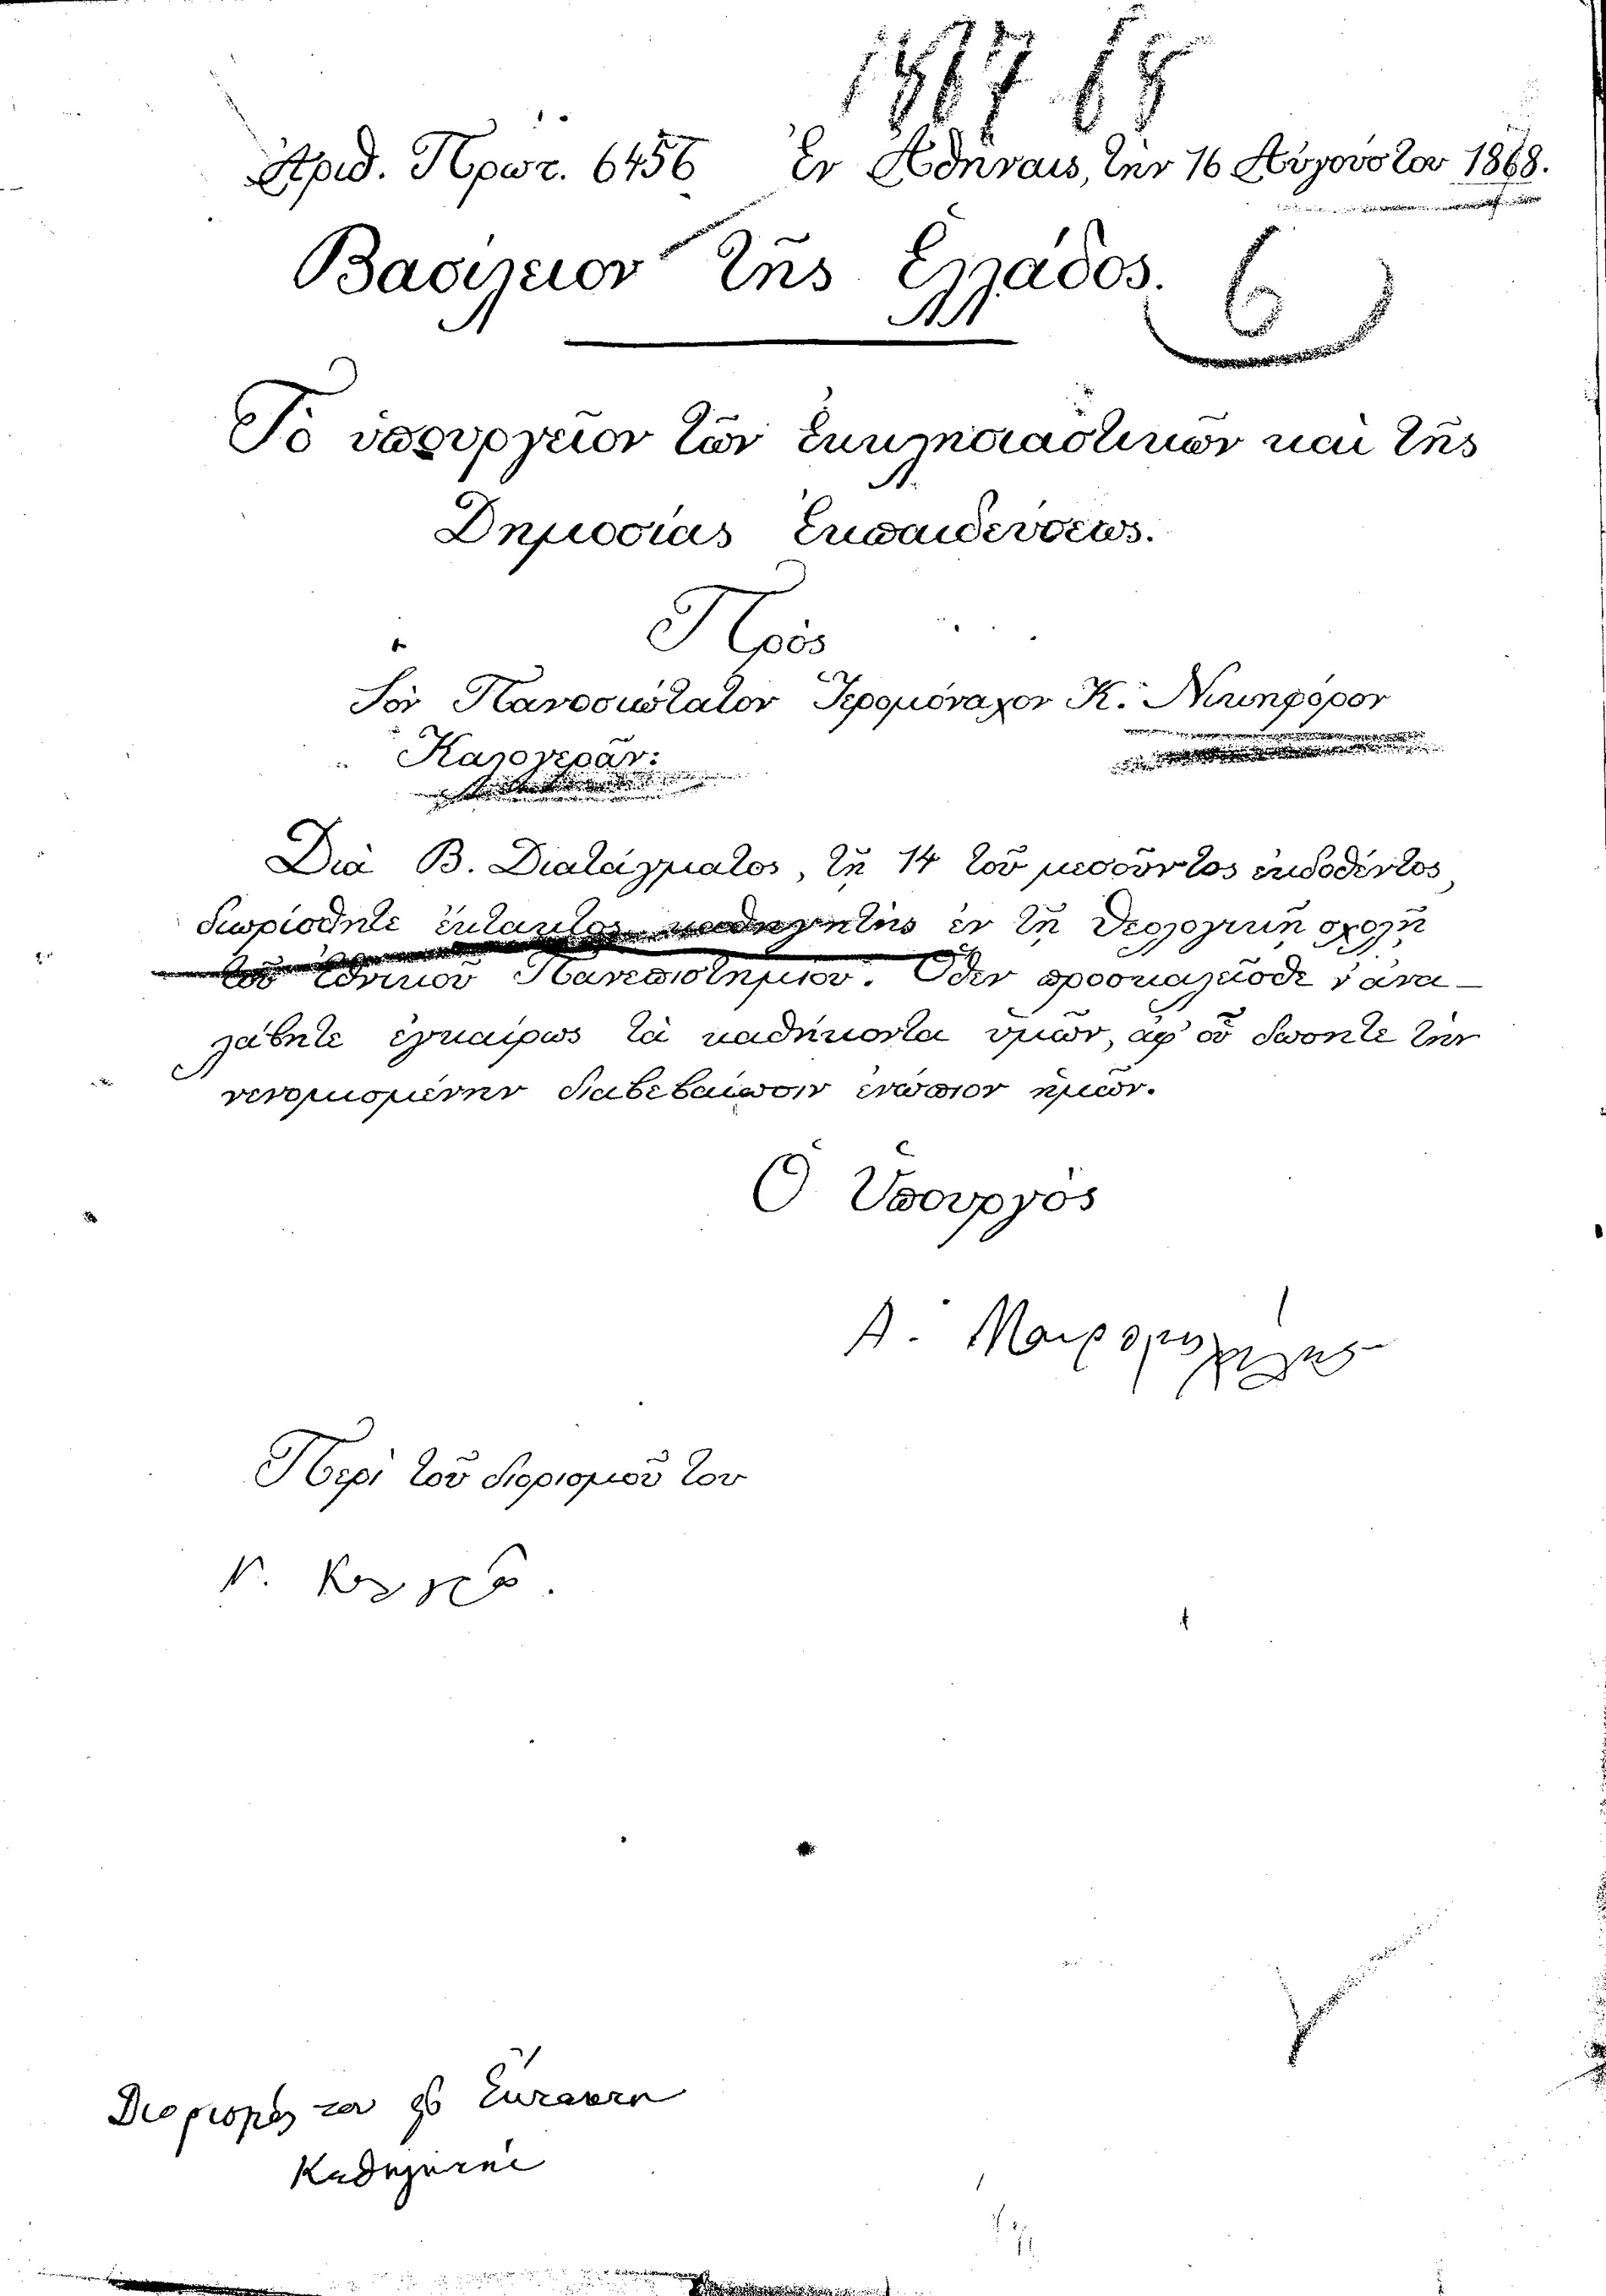 1867-68
Ἀριθ. Πρωτ. 6456 Ἐν Ἀθήναις, τὴν 16 Αὐγούστου 1868.
Βασίλειον τῆς Ἑλλάδος. 6
Τὸ ὑπουργεῖον τῶν Ἐκκλησιαστικῶν καὶ τῆς
Δημοσίας Ἐκπαιδεύσεως.
Πρὸς
Τὸν Πανοσιώτατον Ἱερομόναχον Κ. Νικηφόρον
Καλογερᾶν:
Διὰ Β. Διατάγματος, τῇ 14 τοῦ μεσοῦντος ἐκδοθέντος,
διωρίσθητε ἔκτακτος καθηγητὴς ἐν τῇ θεολογικῇ σχολῇ
τοῦ Ἐθνικοῦ Πανεπιστημίου. Ὅθεν προσκαλεῖσθε ν' ἀνα-
λάβητε ἐγκαίρως τὰ καθήκοντα ὑμῶν, ἀφ' οὗ δώσητε τὴν
νενομισμένην διαβεβαίωσιν ἐνώπιον ἡμῶν.
Ὁ Ὑπουργὸς
Α. Μαυρομιχάλης
Περὶ τοῦ διορισμοῦ του
Ν. Καλογερᾶ.
Διορισμός του ὡς Ἐκτάκτου
Καθηγητοῦ